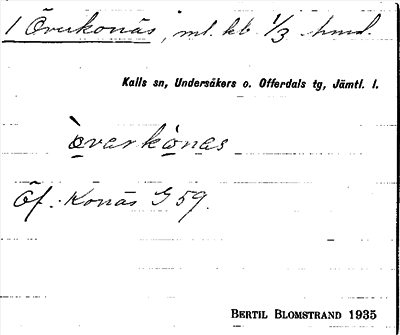 1 Överkonäs, ml. kb 1/3 hmd.
Kalls sn, Undersåkers o. Offerdals tg, Jämtl. l.
òvarkònæs
Öf. Konäs G 59.
BERTIL BLOMSTRAND 1935